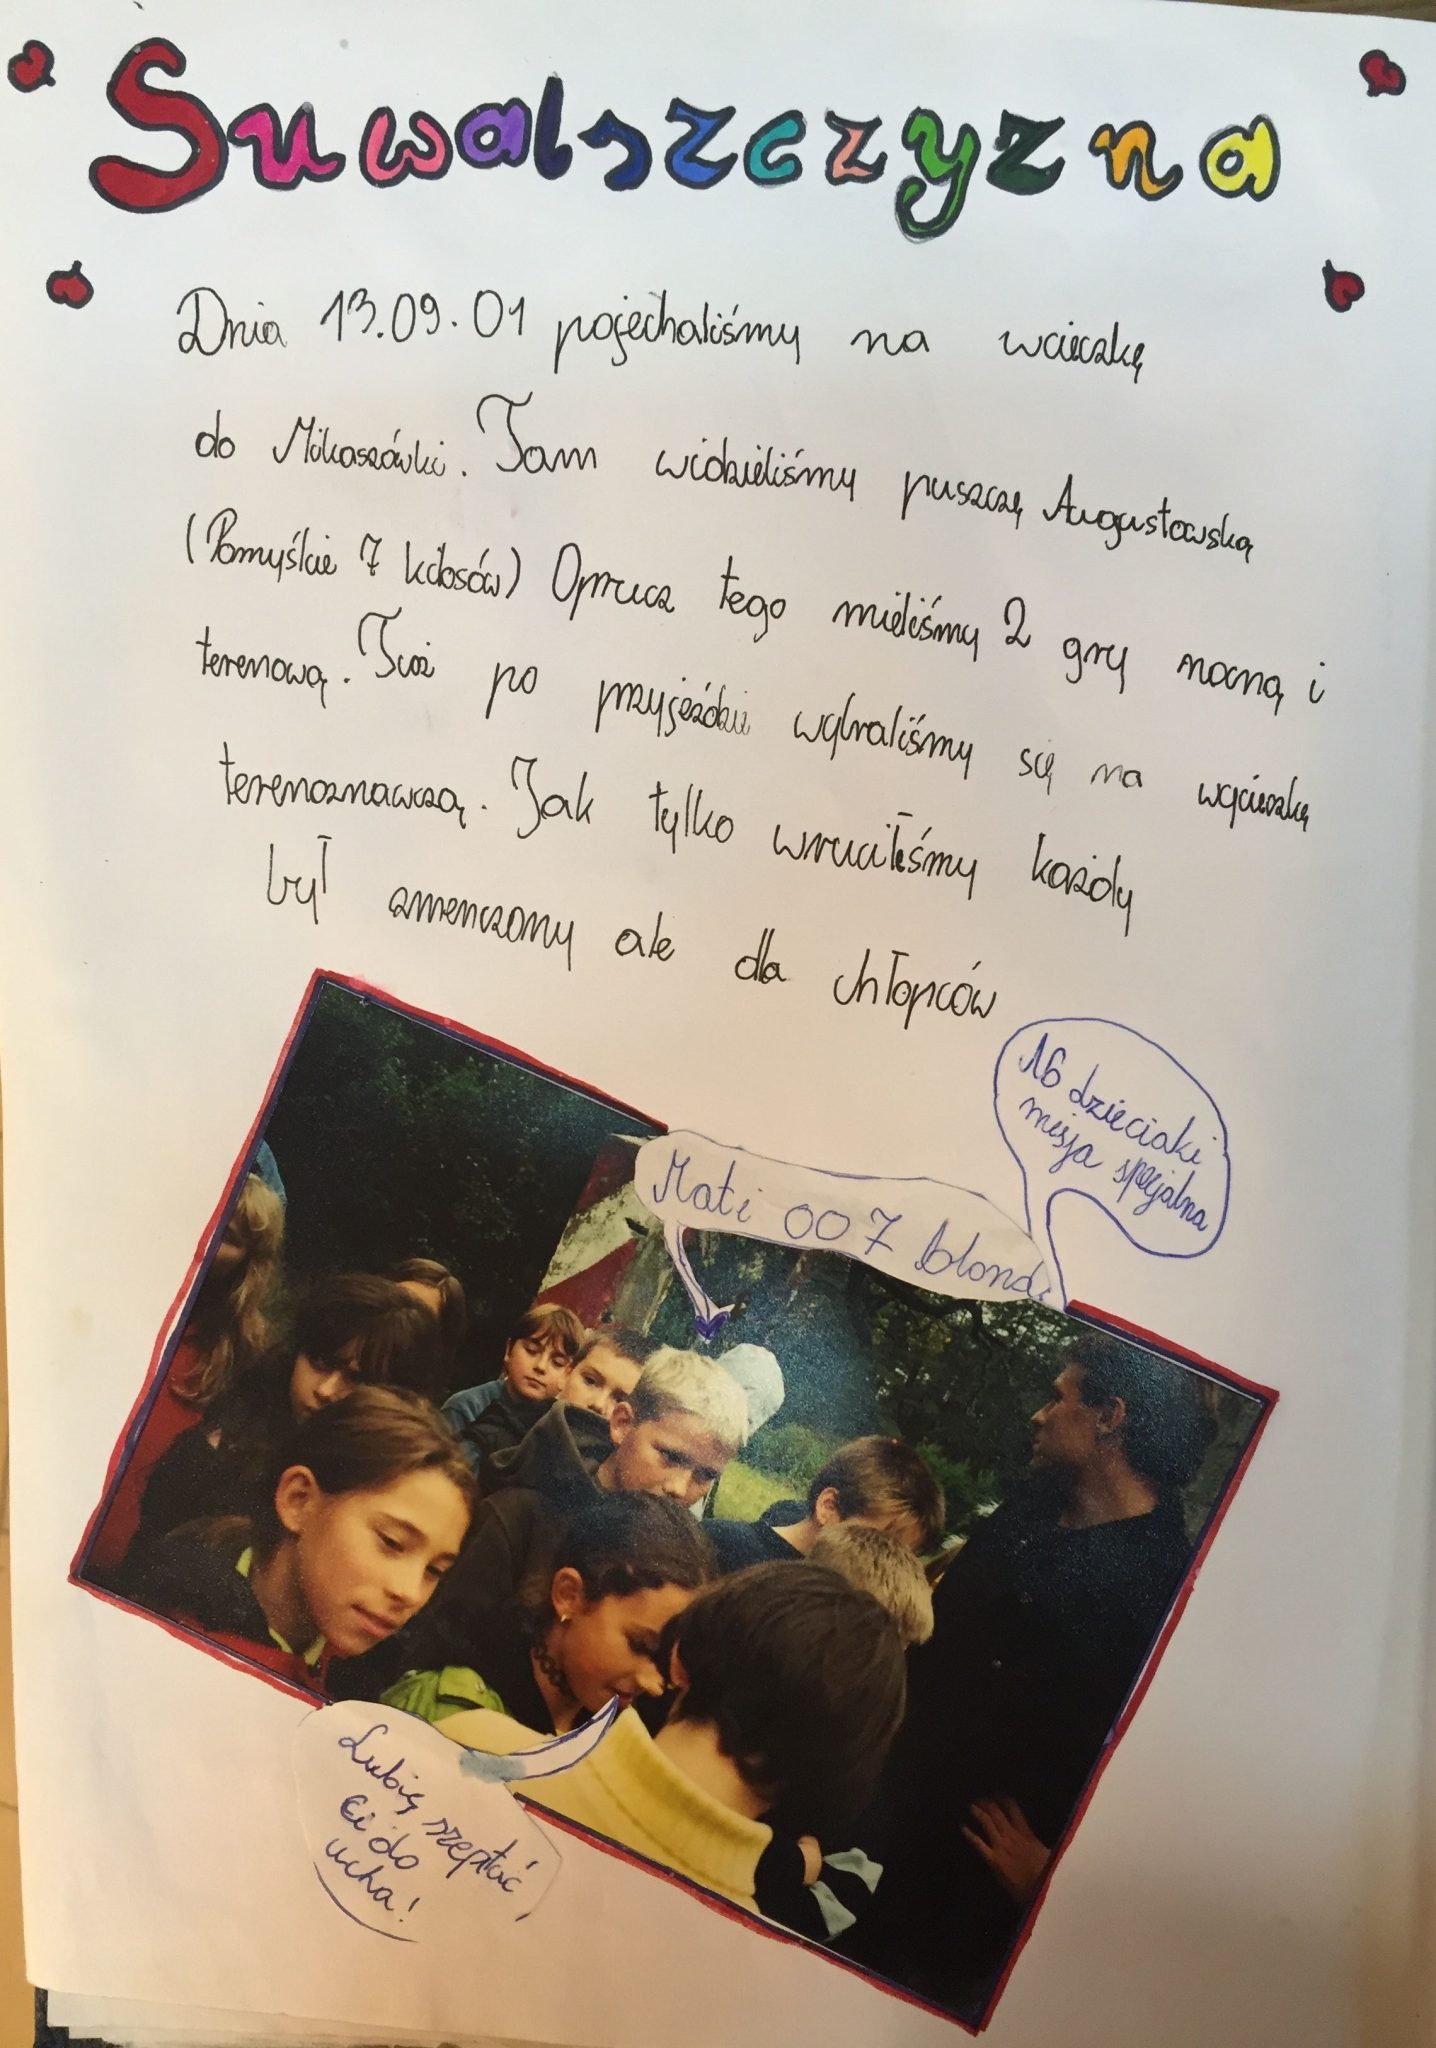 Suwalszczyzna
Dnia 13.09.01 pojechaliśmy na wcieczkę
do Mikaszówki. Tam widzieliśmy puszczę Augustowską
(Pomyślcie 7 kilosów) Oprucz tego mieliśmy 2 gry nocną i
terenową. Tuż po przyjeździe wybraliśmy się na wycieczkę
terenoznawczą. Jak tylko wruciliśmy każdy
był zmenczony ale dla chłopców
16 dzieciaki
misja specjalna
Mati 007 blond
Lubię szeptać
ci do
ucha!